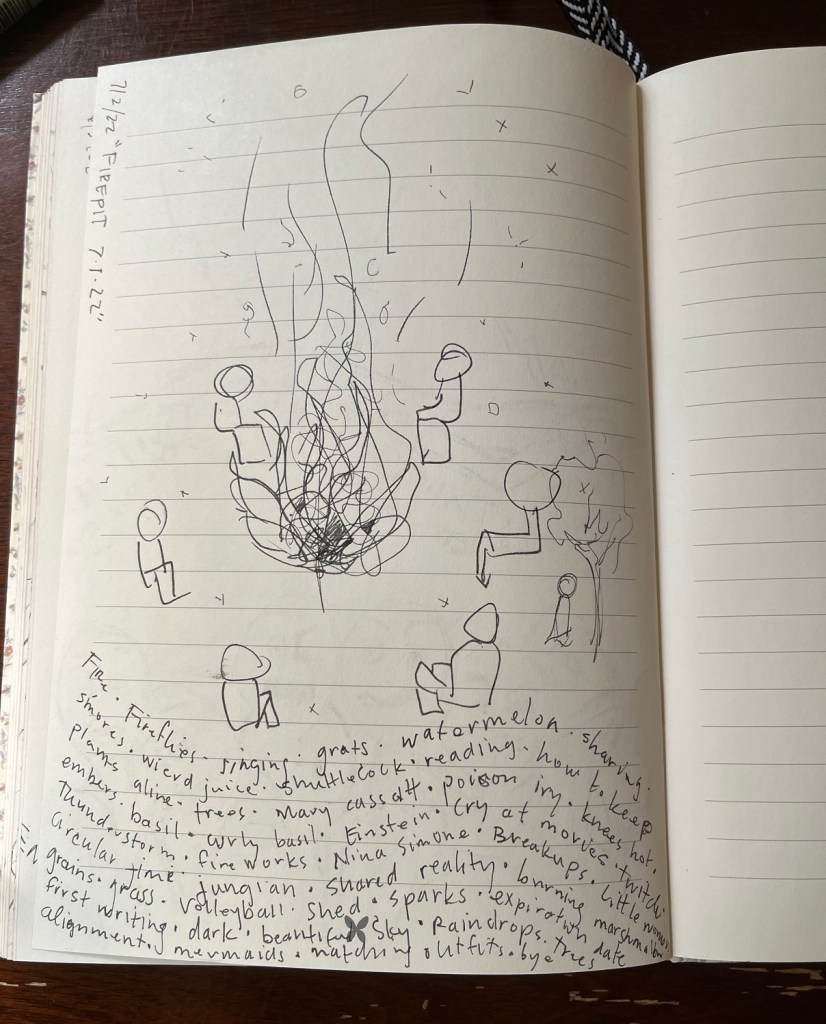 7/2/22 "FIREPIT 7.1.22"
Fire. Fireflies. singing. grats. watermelon. sharing.
s'mores. wierd juice. shuttlecock. reading. how to keep
plants alive. trees. Mary cassatt. poison ivy. knees hot.
embers. basil. curly basil. Einstein. Cry at movies. twitch.
Thunderstorm. fireworks. Nina Simone. Breakups. little women
circular time. jungian. shared reality. burning marshmallow
grains. grass. volleyball. shed. sparks. expiration date
first writing. dark. beautiful sky. Raindrops. trees
alignment. mermaids. matching outfits. bye